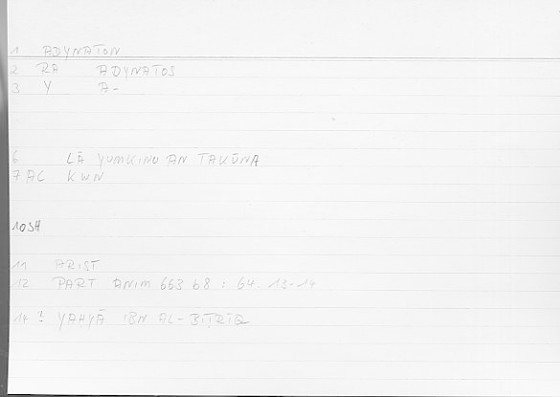 1 ADYNATON
2 RA ADYNATOS
3 Y A-
6 LĀ YUMKINU AN TAKŪNA
7 AC KWN
1039
11 ARIST
12 PART ANIM 663 b8 : 64. 13-14
14 ? YAḤYĀ IBN AL-BIṬRĪQ